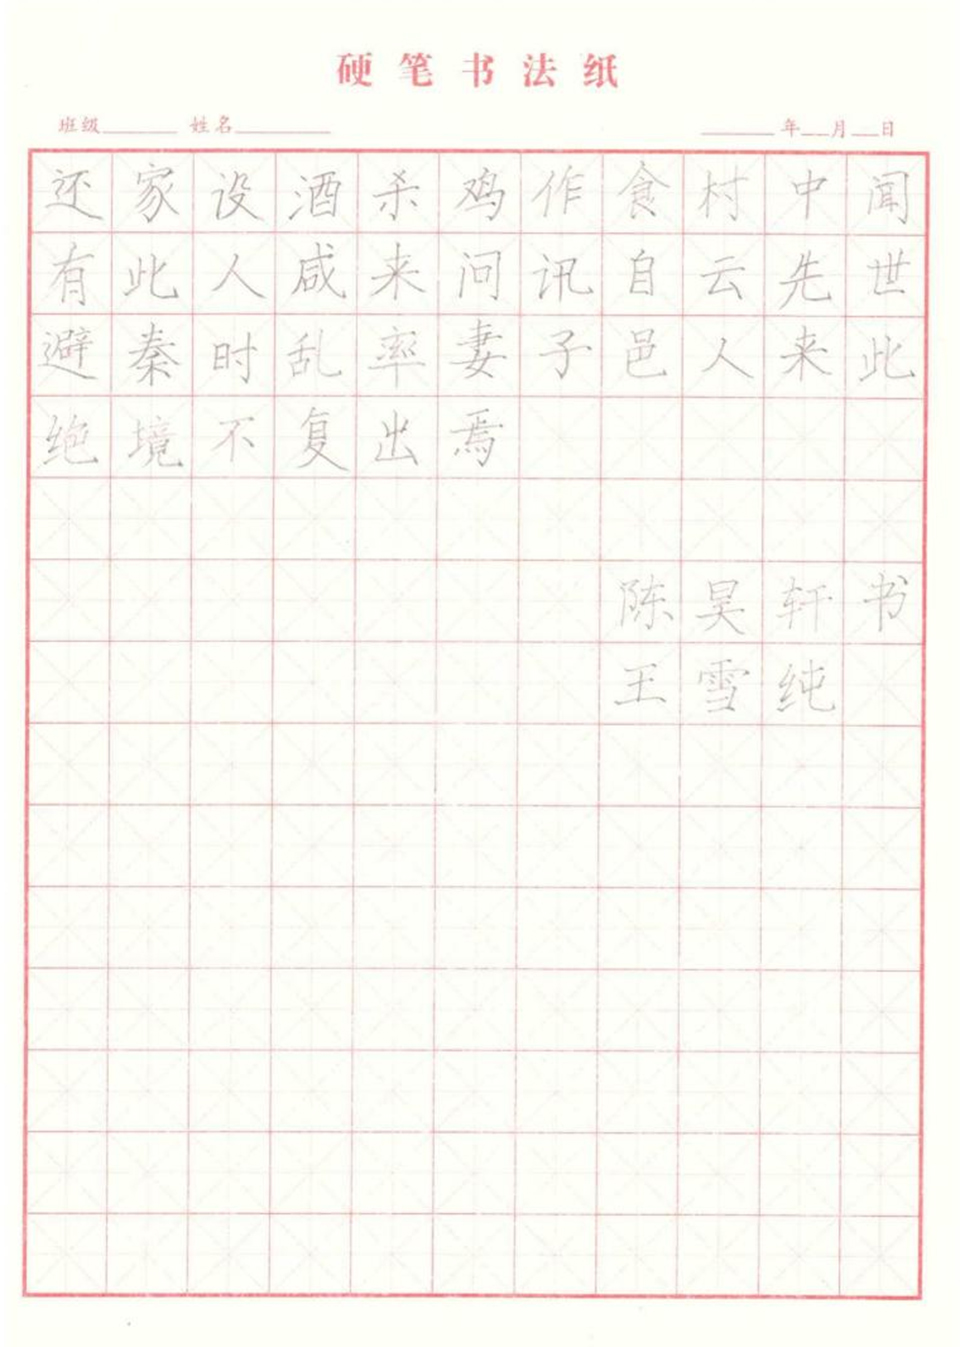 硬笔书法纸
班级 姓名 年 月 日
还家设酒杀鸡作食村中闻
有此人咸来问讯自云先世
避秦时乱率妻子邑人来此
绝境不复出焉
陈昊轩书
王雪纯